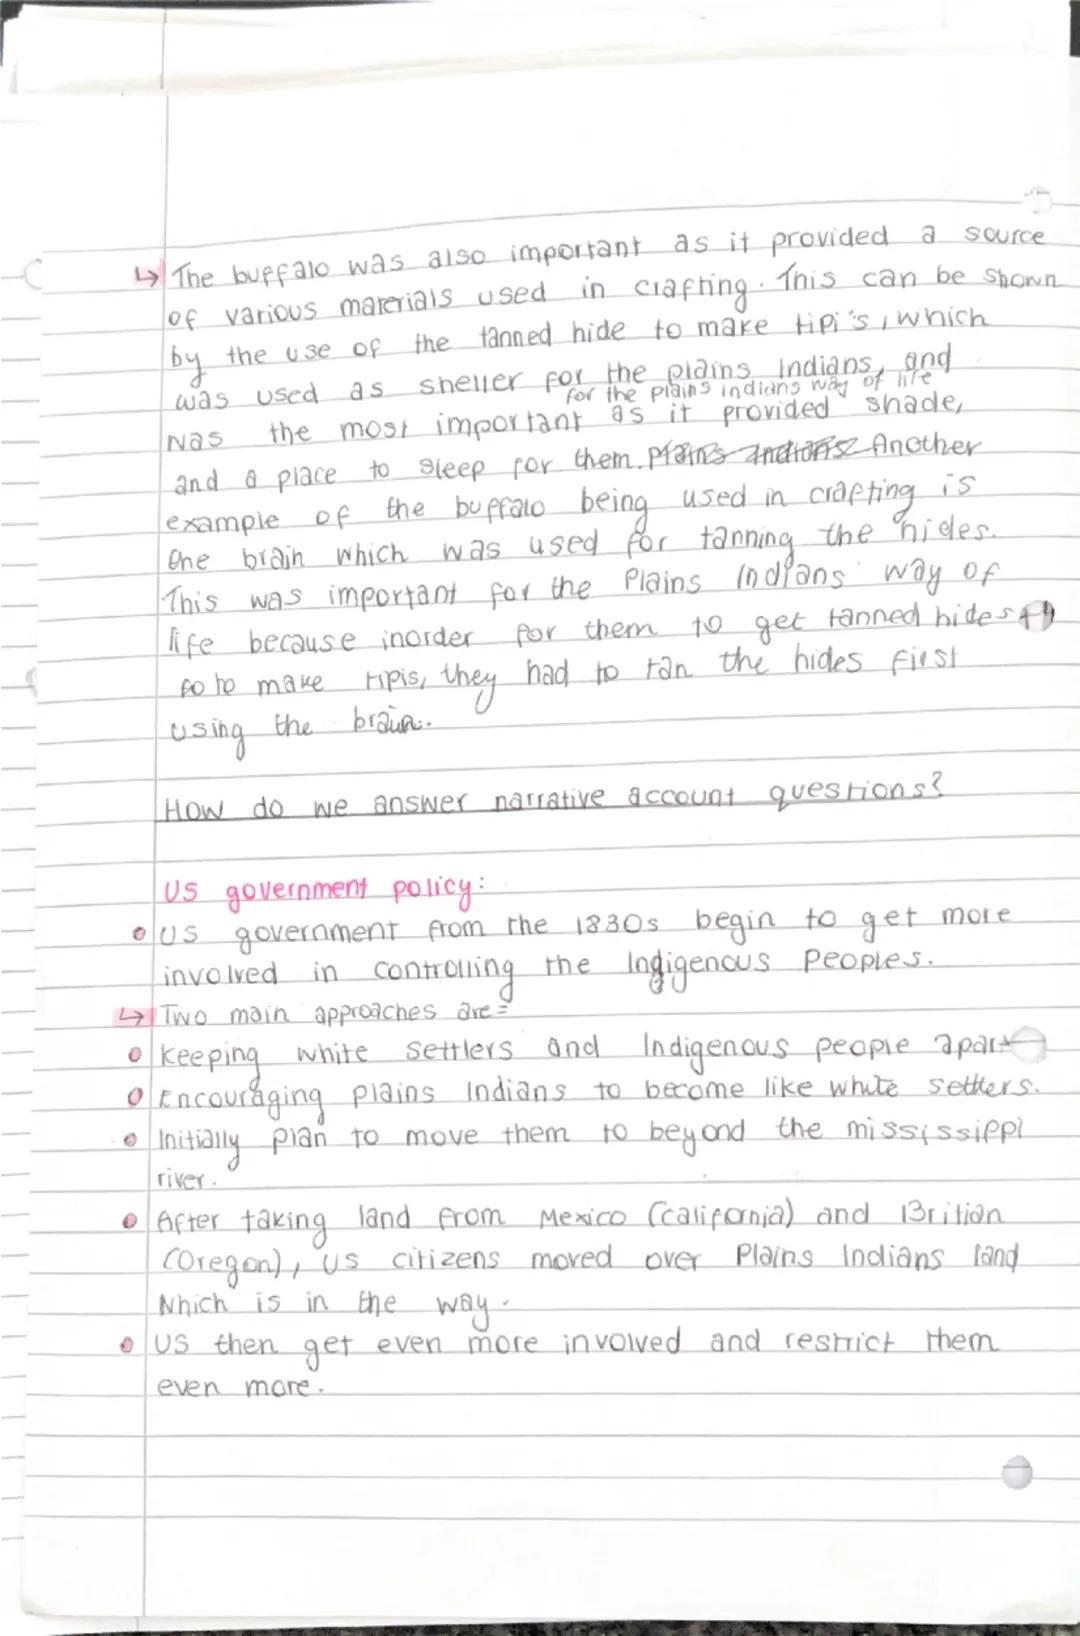 ↳ The buffalo was also important as it provided a source
of various materials used in crafting. This can be shown
by the use of the tanned hide to make tipi's, which
was used as shelter for the plains Indians, and
for the plains indians way of life
was the most important as it provided shade,
and a place to sleep for them. plains indians Another
example of the buffalo being used in crafting is
the brain which was used for tanning the hides.
This was important for the Plains Indians way of
life because inorder for them to get tanned hides
to make tipis, they had to tan the hides first
using the brain.
How do we answer narrative account questions?
US government policy:
• US government from the 1830s begin to get more
involved in controlling the Indigenous Peoples.
↳ Two main approaches are:
• keeping white settlers and Indigenous people apart
• Encouraging plains Indians to become like white settlers.
• Initially plan to move them to beyond the mississippi
river.
• After taking land from Mexico (california) and Britian
(Oregon), US citizens moved over Plains Indians land
which is in the way.
• US then get even more involved and restrict them
even more.